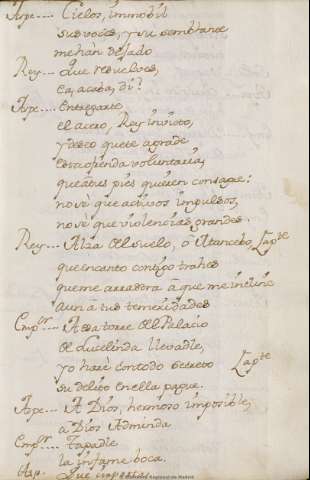 Ape.... Cielos, immobil
sus voces, y su semblante
me han dejado
Rey... que resuelves,
ea, acaba, di?
Ape.... Entregarte
el acero, Rey invicto,
y deseo que te agrade
esta ofrenda voluntaria,
que à tus pies quieren consagrar:
no sè que activos impulsos,
no sè que violencias grandes.
Rey... Alza del suelo, ò Mancebo, Lapte
que encanto contigo trahes
que me arrastra à que me inclino
aun à tus temeridades
Empr.... A esa torre del Palacio
de Lucelinda llevadle,
yo harè con todo secreto Lapte
su delito en ella pague.
Ape.... A Dios, hermoso imposible,
a Dios Adminda
Empr... Tapadle
la infame boca.
Ape. Que
Regional de Madrid